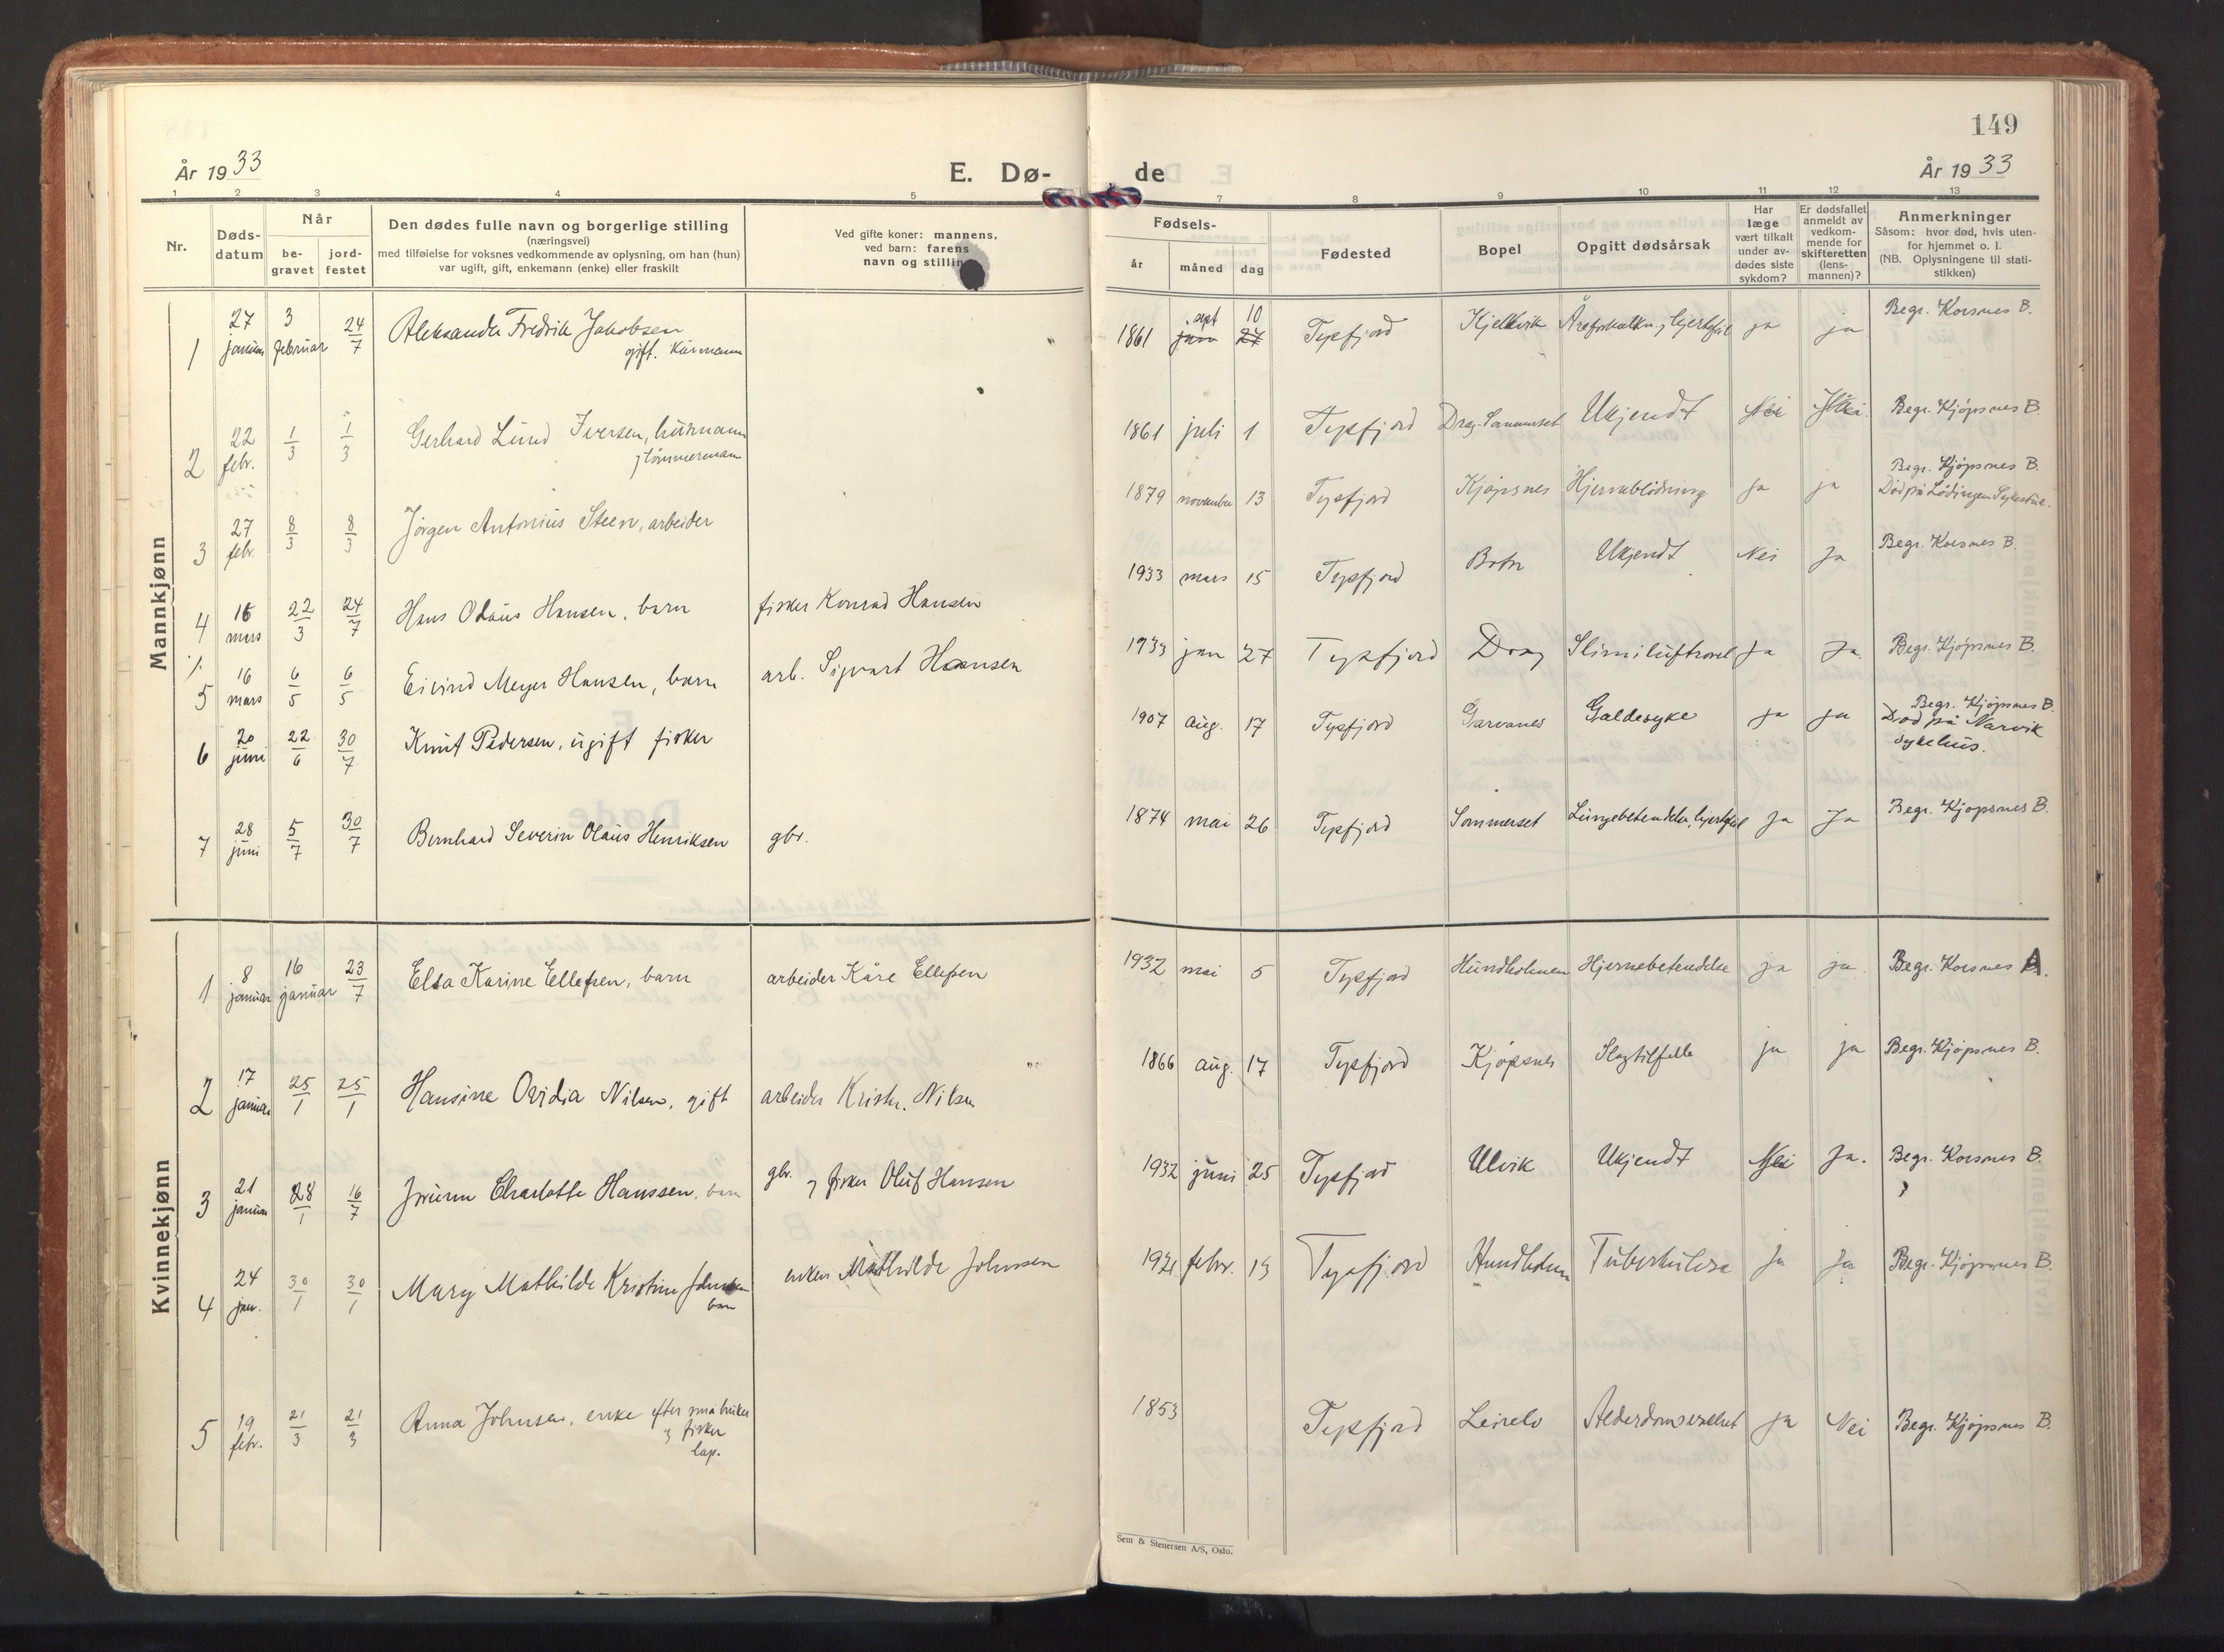 149
År 19 33
E. Dø-
de
År 19 33
1 2 3 4 5 7 8 9 10 11 12 13
Nr.
Døds-
datum
Når
be-
gravet
jord-
festet
Den dødes fulle navn og borgerlige stilling
(næringsvei)
med tilføielse for voksnes vedkommende av oplysning, om han (hun)
var ugift, gift, enkemann (enke) eller fraskilt
Ved gifte koner: mannens,
ved barn: farens
navn og stilling
Fødsels-
år
måned
dag
Fødested
Bopel
Opgitt dødsårsak
Har
læge
vært tilkalt
under av-
dødes siste
sykdom?
Er dødsfallet
anmeldt av
vedkom-
mende for
skifteretten
(lens-
mannen)?
Anmerkninger
Såsom: hvor død, hvis uten-
for hjemmet o. l.
(NB. Oplysningene til stati-
stikken)
Mannkjønn
1 27 januar 3 februar 24/7 Aleksander Fredrik Jakobsen
gift. Kårmann
1861 sept 10 Tysfjord Kjelkvik Årefor­kalkn. j hjertefeil ja ja Begr. Korsnes B.
2 22 febr. 1/3 1/3 Gerhard Lund Iversen, husmann
j tömmermann
1861 juli 1 Tysfjord Drag Sommerset Ukjendt Nei Nei. Begr. Kjöpsnes B.
3 27 febr. 8/3 8/3 Jörgen Antonius Steen, arbeider
1879 november 13 Tysfjord Kjöpsnes Hjerneblödning ja ja Begr. Kjöpsnes B.
Död på Lödingen Sykehus.
4 16 mars 22/3 24/7 Hans Olaus Hansen, barn fisker Konrad Hansen
1933 mars 15 Tysfjord Botn Ukjendt Nei Ja Begr. Korsnes B.
5 16 mars 6/5 6/5 Eivind Meyer Hansen, barn arb. Sigvart Hansen
1933 jan 27 Tysfjord Drag Slim i luftrörel Ja Ja. Begr. Kjöpsnes B.
6 20 juni 22/6 30/7 Knut Pedersen, ugift fisker
1907 aug. 17 Tysfjord Garvanes Galdesyke ja ja Begr. Kjöpsnes B.
Död på Narvik
sykehus.
7 28 juni 5/7 30/7 Bernhard Severin Olaus Henriksen gbr.
1874 mai 26 Tysfjord Sommerset Lungebetendelse, hjertefeil Ja Ja Begr. Kjöpsnes B.
Kvinnekjønn
1 8 januar 16 januar 23/7 Elsa Karine Ellefsen, barn arbeider Kåre Ellefsen
1932 mai 5 Tysfjord Hundholmen Hjernebetendelse ja ja. Begr. Korsnes A.
2 17 januar 25/1 25/1 Hansine Ovidia Nilsen, gift arbeider Kristn. Nilsen
1866 aug. 17 Tysfjord Kjöpsnes Slagtilfelle ja ja Begr. Kjöpsnes B.
3 21 januar 28/1 16/7 Jorunn Charlotte Hanssen, barn gbr. j fisker Oluf Hansen
1932 juni 25 Tysfjord Ulvik Ukjendt Nei Ja. Begr. Korsnes B.
4 24 jan. 30/1 30/1 Mary Mathilde Kristine Johnsen
barn
enken Mathilde Johnsen
1921 febr. 19 Tysfjord Hundholm Tuberkulose Ja Ja Begr. Kjöpsnes B.
5 19 febr. 21/3 21/3 Anna Johnsen, enke efter småbruker
j fisker
lap.
1853 Tysfjord Leirelv Alderdomsvakhet ja Nei Begr. Kjöpsnes B.
Sem & Stenersen A/S, Oslo.